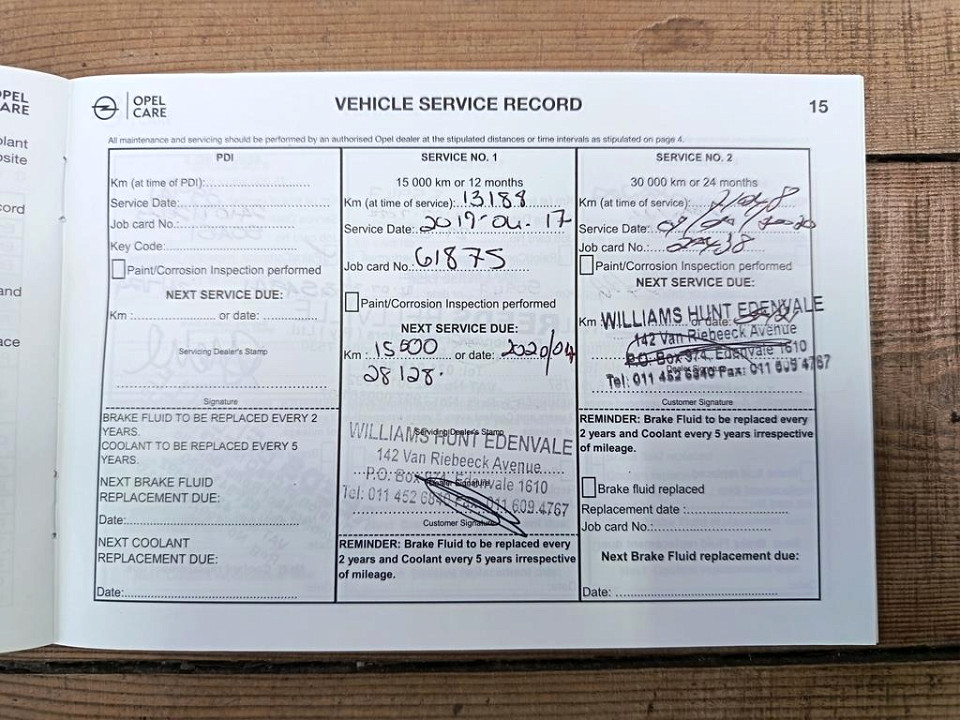 OPEL
CARE
VEHICLE SERVICE RECORD
15
All maintenance and servicing should be performed by an authorised Opel dealer at the stipulated distances or time intervals as stipulated on page 4.
PDI
Km (at time of PDI):
Service Date:
Job card No.:
Key Code:
Paint/Corrosion Inspection performed
NEXT SERVICE DUE:
Km : or date:
Servicing Dealer's Stamp
Signature
BRAKE FLUID TO BE REPLACED EVERY 2
YEARS.
COOLANT TO BE REPLACED EVERY 5
YEARS.
NEXT BRAKE FLUID
REPLACEMENT DUE:
Date:
NEXT COOLANT
REPLACEMENT DUE:
Date:
SERVICE NO. 1
15 000 km or 12 months
Km (at time of service): 13188
Service Date: 2019-04-17
Job card No.: 61875
Paint/Corrosion Inspection performed
NEXT SERVICE DUE:
Km : 15500 or date: 2020/04
28128.
Servicing Dealer's Stamp
WILLIAMS HUNT EDENVALE
142 Van Riebeeck Avenue
P.O. Box 974, Edenvale 1610
Dealer Signature
Tel: 011 452 6840 Fax: 011 609 4767
Customer Signature
REMINDER: Brake Fluid to be replaced every
2 years and Coolant every 5 years irrespective
of mileage.
SERVICE NO. 2
30 000 km or 24 months
Km (at time of service):
Service Date:
Job card No.:
Paint/Corrosion Inspection performed
NEXT SERVICE DUE:
Km : or date:
WILLIAMS HUNT EDENVALE
142 Van Riebeeck Avenue
P.O. Box 974, Edenvale 1610
Tel: 011 452 6840 Fax: 011 609 4767
Customer Signature
REMINDER: Brake Fluid to be replaced every
2 years and Coolant every 5 years irrespective
of mileage.
Brake fluid replaced
Replacement date :
Job card No.:
Next Brake Fluid replacement due:
Date: